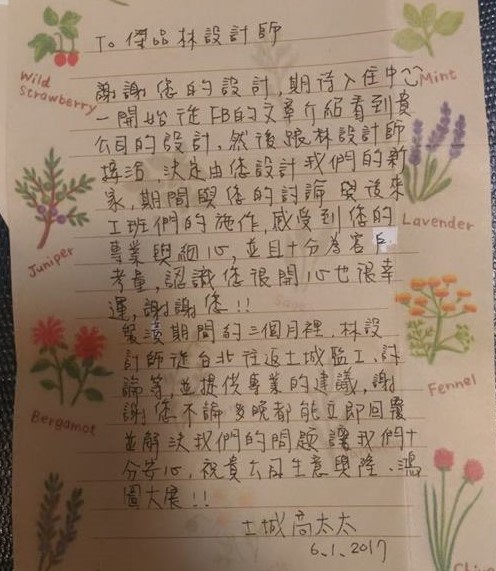 To 傑品林設計師
謝謝您的設計,期待入住中
一開始從FB的文章介紹看到貴
公司的設計,然後跟林設計師
接洽,決定由您設計我們的新
家,期間與您的討論與後來
工班們的施作,感受到您的
專業與細心,並且十分為客戶
考量,認識您很開心也很幸
運,謝謝您!!
裝潢期間約三個月裡,林設
計師從台北往返土城監工、討
論等,並提供專業的建議,謝
謝您不論多晚都能立即回覆
並解決我們的問題讓我們十
分安心,祝貴公司生意興隆、鴻
圖大展!!
土城 高太太
6.1.2017
Wild
Strawberry
Mint
Juniper
Lavender
Bergamot
Fennel